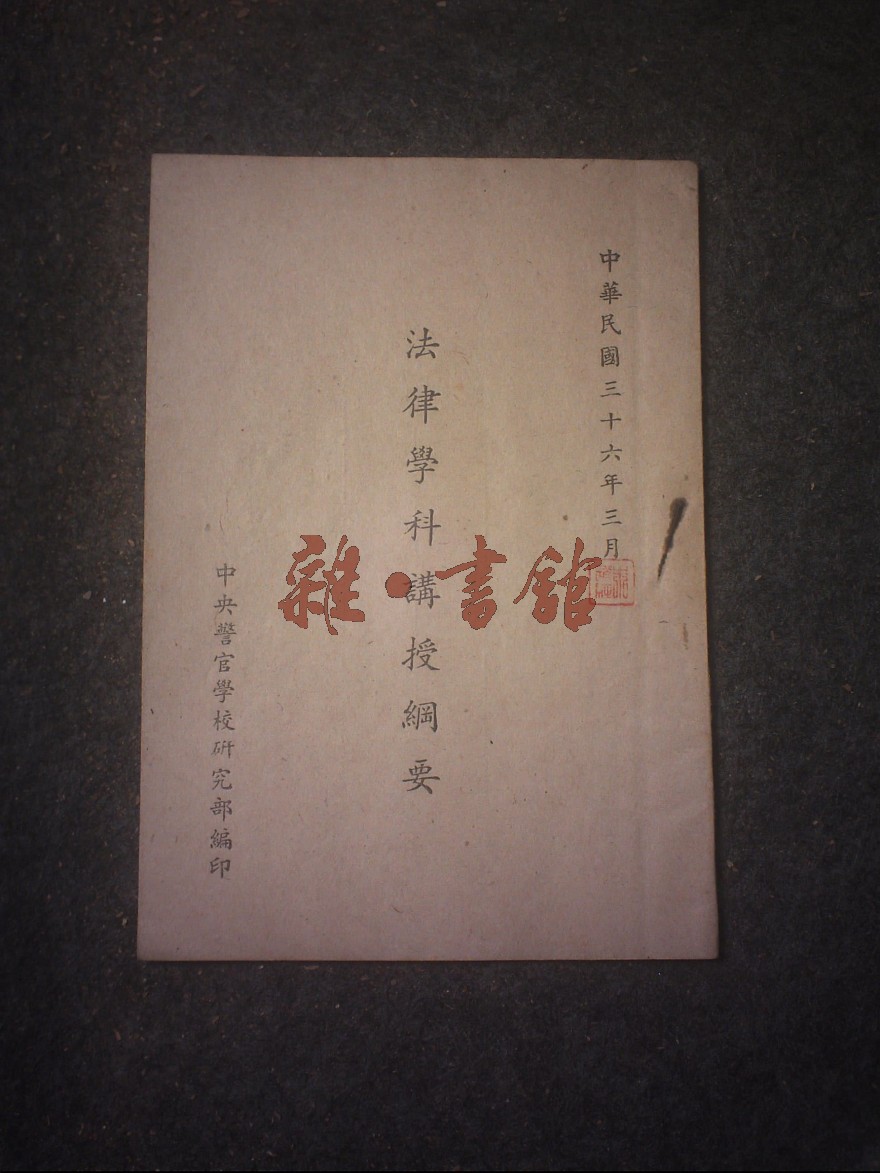 中華民國三十六年三月
法律學科講授綱要
中央警官學校研究部編印
雜·書館